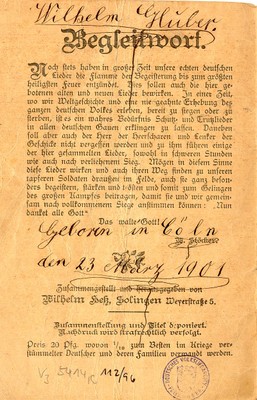 Wilhelm Gluber
Begleitwort.
Noch stets haben in großer Zeit unsere echten deutschen
Lieder die Flamme der Begeisterung bis zum größten
heiligsten Feuer entzündet. Dies sollen auch die hier ge-
botenen alten und neuen Lieder bewirken. In einer Zeit,
wo wir Weltgeschichte und eine nie geahnte Erhebung des
ganzen deutschen Volkes erleben, bereit zu siegen oder zu
sterben, ist es ein wahres Bedürfnis Schutz- und Trutzlieder
in allen deutschen Gauen erklingen zu lassen. Daneben
soll aber auch der Herr der Heerscharen und Lenker der
Geschicke nicht vergessen werden und zu ihm führen einige
der hier gesammelten Lieder, sowohl in schweren Stunden
wie auch nach verliehenem Sieg. Mögen in diesem Sinne
diese Lieder wirken und auch ihren Weg finden zu unseren
tapferen Soldaten draußen im Felde, auch sie ganz beson-
ders begeistern, stärken und trösten und somit zum Gelingen
des großen Kampfes beitragen, damit sie und wir gemein-
sam nach vollkommenem Siege anstimmen können: „Nun
danket alle Gott"
Das walte Gott!
Geboren in Cöln
den 23 März 1901
Zusammengestellt und herausgegeben von
Wilhelm Heß, Solingen Weyerstraße 5.
Zusammenstellung und Titel deponiert.
Nachdruck wird strafrechtlich verfolgt.
Preis 20 Pfg. wovon 1/10 zum Besten im Kriege ver-
stümmelter Deutscher und deren Familien verwandt werden.
V3 5414c 112/96